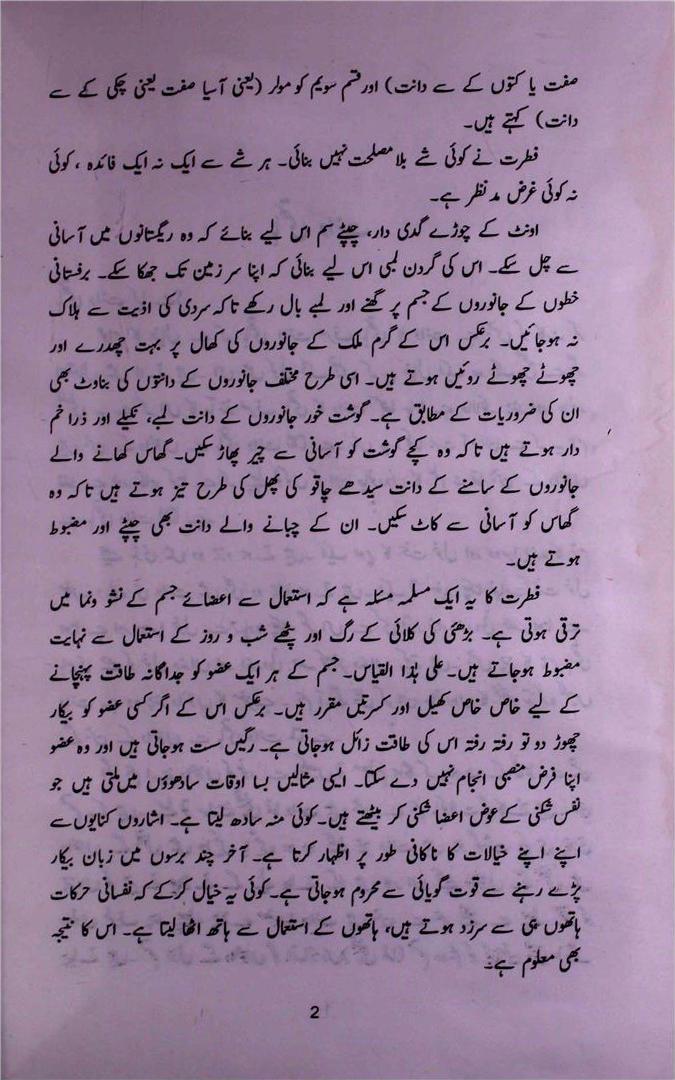 صفت یا کتوں کے سے دانت) اور قسم سویم کو مولر (یعنی آسیا صفت یعنی چکی کے سے
دانت) کہتے ہیں۔
فطرت نے کوئی شے بلا مصلحت نہیں بنائی۔ ہر شے سے ایک نہ ایک فائدہ ، کوئی
نہ کوئی غرض مد نظر ہے۔
اونٹ کے چوڑے گدی دار، چپٹے سم اس لیے بنائے کہ وہ ریگستانوں میں آسانی
سے چل سکے۔ اس کی گردن لمبی اس لیے بنائی کہ اپنا سر زمین تک جھکا سکے۔ برفستانی
خطوں کے جانوروں کے جسم پر گھنے اور لمبے بال رکھے تاکہ سردی کی اذیت سے ہلاک
نہ ہوجائیں۔ برعکس اس کے گرم ملک کے جانوروں کی کھال پر بہت چھدرے اور
چھوٹے چھوٹے روئیں ہوتے ہیں۔ اسی طرح مختلف جانوروں کے دانتوں کی بناوٹ بھی
ان کی ضروریات کے مطابق ہے۔ گوشت خور جانوروں کے دانت لمبے، نکیلے اور ذرا خم
دار ہوتے ہیں تاکہ وہ کچے گوشت کو آسانی سے چیر پھاڑ سکیں۔ گھاس کھانے والے
جانوروں کے سامنے کے دانت سیدھے چاقو کی پھل کی طرح تیز ہوتے ہیں تاکہ وہ
گھاس کو آسانی سے کاٹ سکیں۔ ان کے چبانے والے دانت بھی چپٹے اور مضبوط
ہوتے ہیں۔
فطرت کا یہ ایک مسلمہ مسئلہ ہے کہ استعمال سے اعضائے جسم کے نشو ونما میں
ترقی ہوتی ہے۔ بڑھئی کی کلائی کے رگ اور پٹھے شب و روز کے استعمال سے نہایت
مضبوط ہوجاتے ہیں۔ علی ہٰذا القیاس۔ جسم کے ہر ایک عضو کو جداگانہ طاقت پہنچانے
کے لیے خاص خاص کھیل اور کسرتیں مقرر ہیں۔ برعکس اس کے اگر کسی عضو کو بیکار
چھوڑ دو تو رفتہ رفتہ اس کی طاقت زائل ہوجاتی ہے۔ رگیں ست ہوجاتی ہیں اور وہ عضو
اپنا فرض منصبی انجام نہیں دے سکتا۔ ایسی مثالیں بسا اوقات سادھوؤں میں ملتی ہیں جو
نفس شکنی کے عوض اعضا شکنی کر بیٹھتے ہیں۔ کوئی منہ سادھ لیتا ہے۔ اشاروں کنایوں سے
اپنے اپنے خیالات کا ناکافی طور پر اظہار کرتا ہے۔ آخر چند برسوں میں زبان بیکار
پڑے رہنے سے قوت گویائی سے محروم ہوجاتی ہے۔ کوئی یہ خیال کرکے کہ نفسانی حرکات
ہاتھوں ہی سے سرزد ہوتے ہیں، ہاتھوں کے استعمال سے ہاتھ اٹھا لیتا ہے۔ اس کا نتیجہ
بھی معلوم ہے۔
2